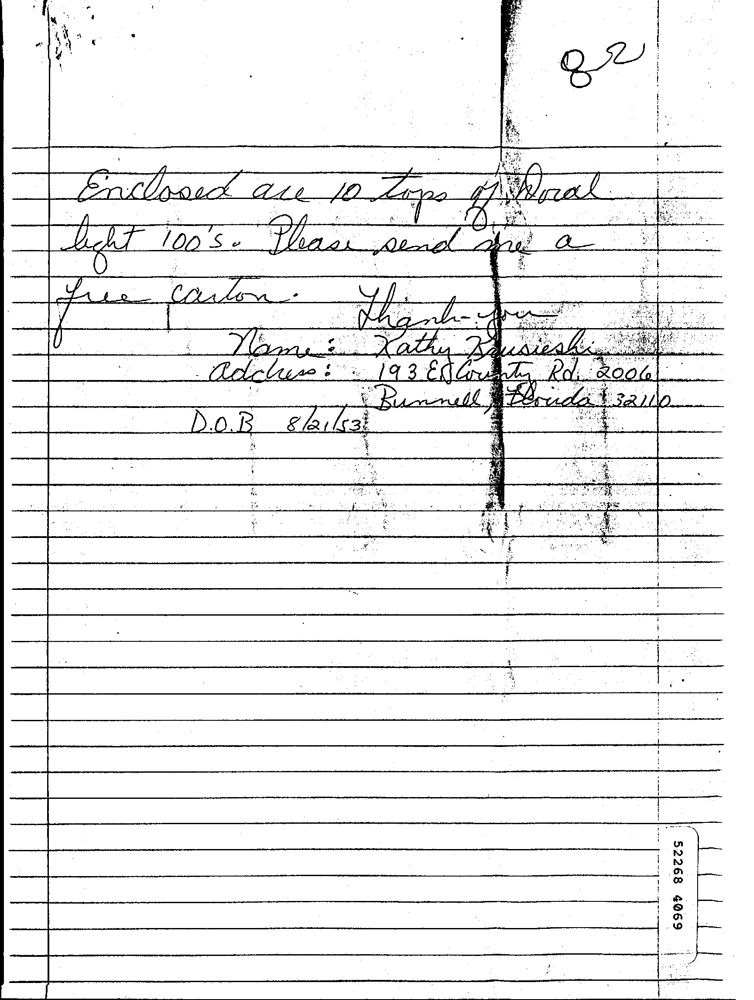 82
Enclosed are 10 tops of Doral
light 100's. Please send me a
free carton.
Thank-you
Name: Kathy
Address: 193 E County Rd. 2006
Bunnell, Florida 32110
D.O.B 8/21/53
52268 4069